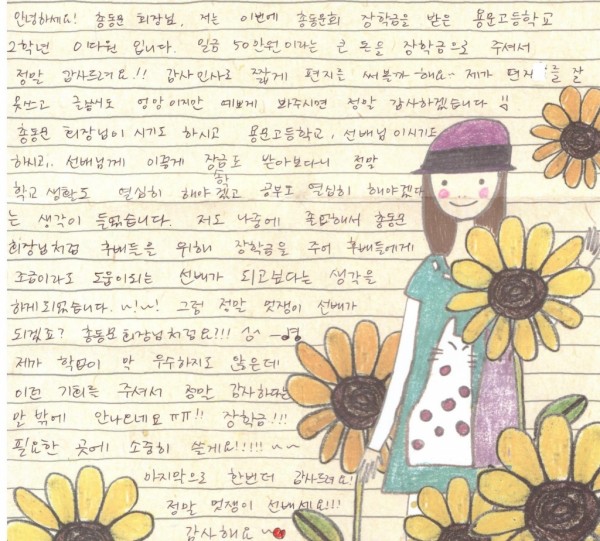 안녕하세요! 총동문 회장님, 저는 이번에 총동문회 장학금을 받은 용문고등학교
2학년 이다원 입니다. 일금 50만원이라는 큰 돈을 장학금으로 주셔서
정말 감사드려요!! 감사인사로 짧게 편지를 써볼까 해요~ 제가 편지를 잘
못쓰고 글씨도 엉망이지만 예쁘게 봐주시면 정말 감사하겠습니다 !!
총동문 회장님이시기도 하시고 용문고등학교, 선배님이시기도
하시고, 선배님께 이렇게 장학금도 받아보다니 정말
학교 생활도 열심히 해야겠고 공부도 열심히 해야겠다
는 생각이 들었습니다. 저도 나중에 졸업해서 총동문
회장님처럼 후배들을 위해 장학금을 주어 후배들에게
조금이라도 도움이되는 선배가 되고싶다는 생각을
하게되었습니다. ~!~! 그럼 정말 멋쟁이 선배가
되겠죠? 총동문회장님처럼요?!!
제가 학업이 막 우수하지도 않은데
이런 기회를 주셔서 정말 감사하다는
말 밖에 안나오네요 ㅠㅠ!! 장학금!!!
필요한 곳에 소중히 쓸게요!!!!! ~~
마지막으로 한번더 감사드려요!
정말 멋쟁이 선배세요!!!
감사해요 ~